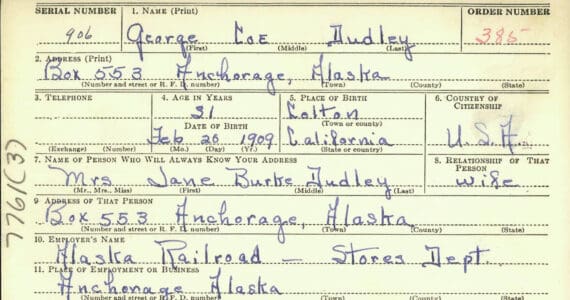 SERIAL NUMBER 1. NAME (Print) ORDER NUMBER
906 George Coe Dudley 385
(First) (Middle) (Last)
2. ADDRESS (Print)
Box 553 Anchorage, Alaska
(Number and street or R. F. D. number) (Town) (County) (State)
3. TELEPHONE 4. AGE IN YEARS 5. PLACE OF BIRTH 6. COUNTRY OF CITIZENSHIP
31 Colton
DATE OF BIRTH (Town or county)
Feb 26 1909 California U.S.A.
(Exchange) (Number) (Mo.) (Day) (Yr.) (State or country)
7. NAME OF PERSON WHO WILL ALWAYS KNOW YOUR ADDRESS 8. RELATIONSHIP OF THAT PERSON
Mrs Jane Burke Dudley wife
(Mr., Mrs., Miss) (First) (Middle) (Last)
9 ADDRESS OF THAT PERSON
Box 553 Anchorage, Alaska
(Number and street or R. F. D. number) (Town) (County) (State)
10. EMPLOYER'S NAME
Alaska Railroad — Stores Dept.
11. PLACE OF EMPLOYMENT OR BUSINESS
Anchorage Alaska
7761(3)